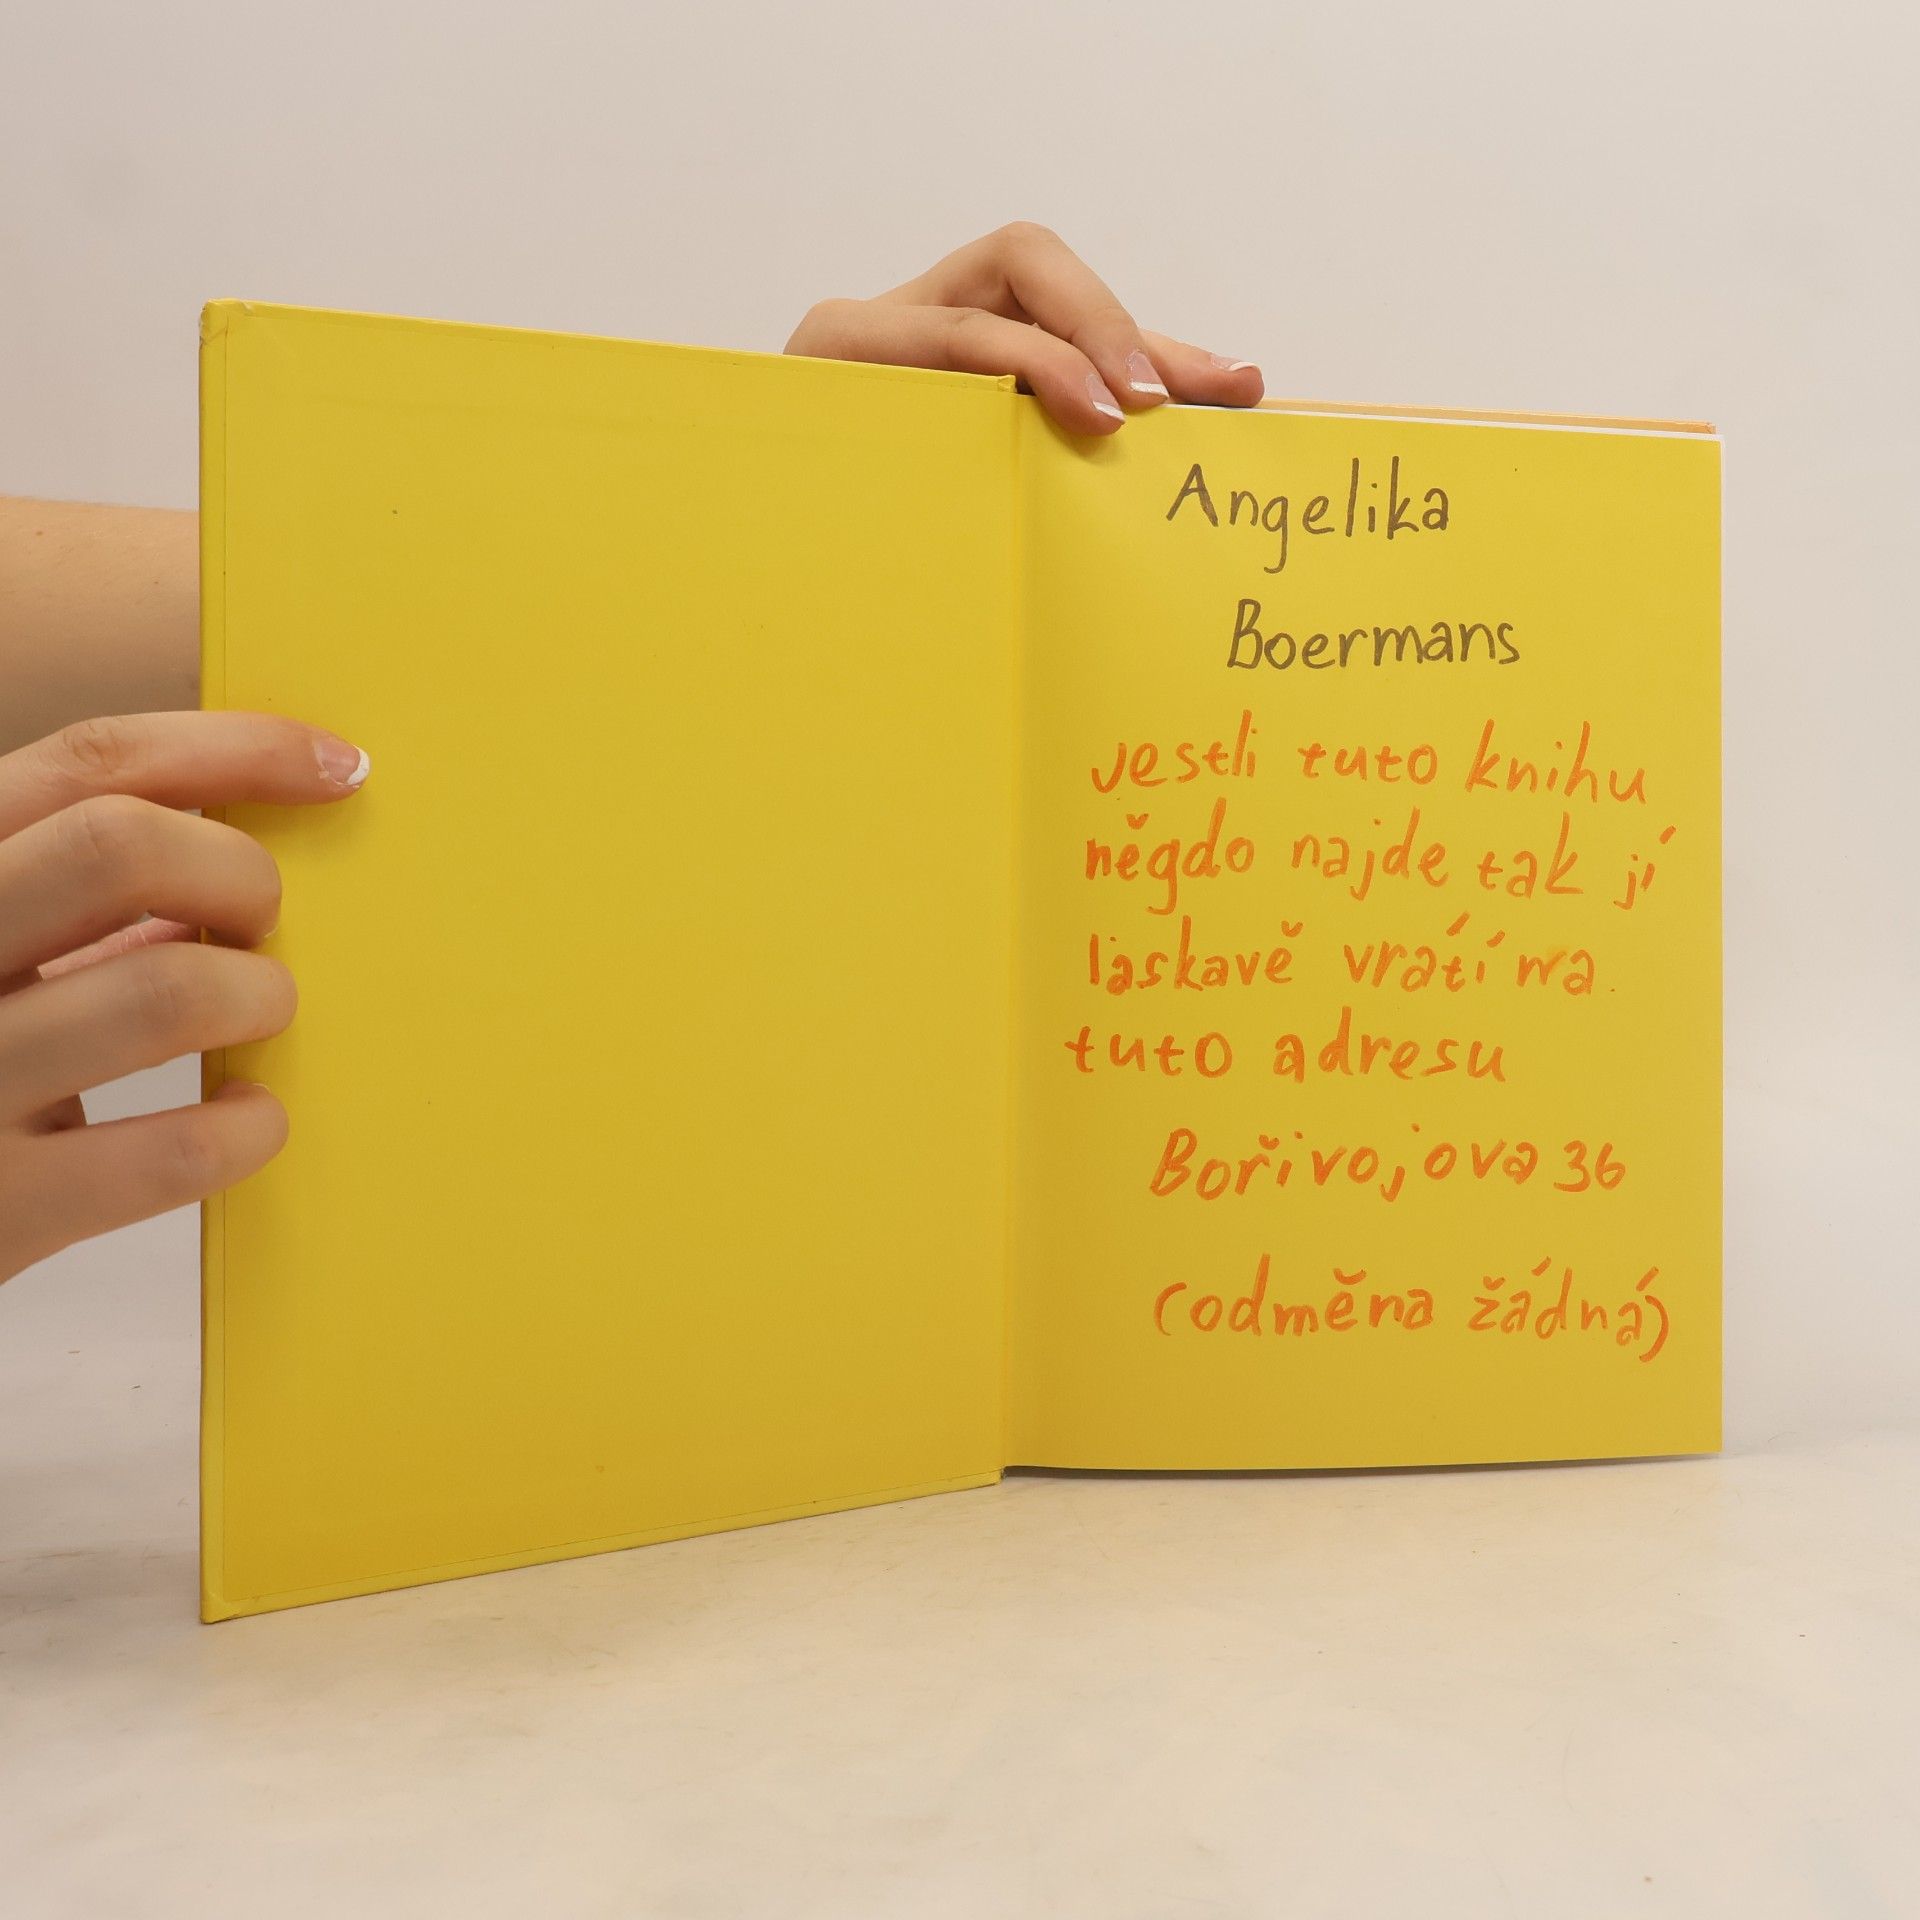 Angelika
Boermans
jestli tuto knihu
něgdo najde tak jí
laskavě vrátí na
tuto adresu
Bořivojova 36
(odměna žádná)